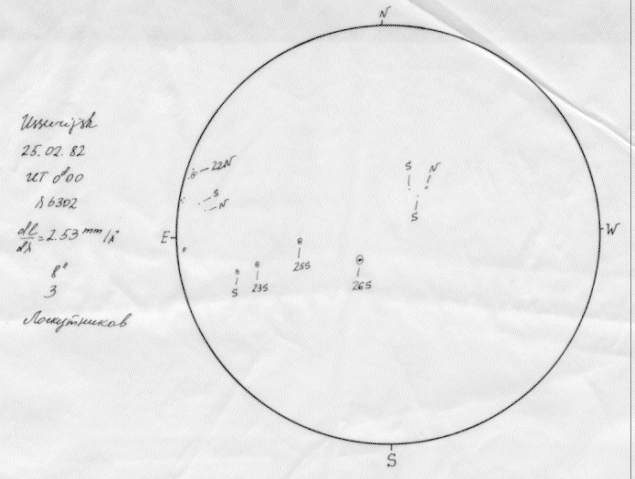 N
Ussurijsk
25.02.82
UT 0ʰ00
λ 6302
dl/dλ = 2.53 mm/Å
8"
3
Лоскутников
22N
S
N
S
N
S
E
W
S
23S
25S
26S
S